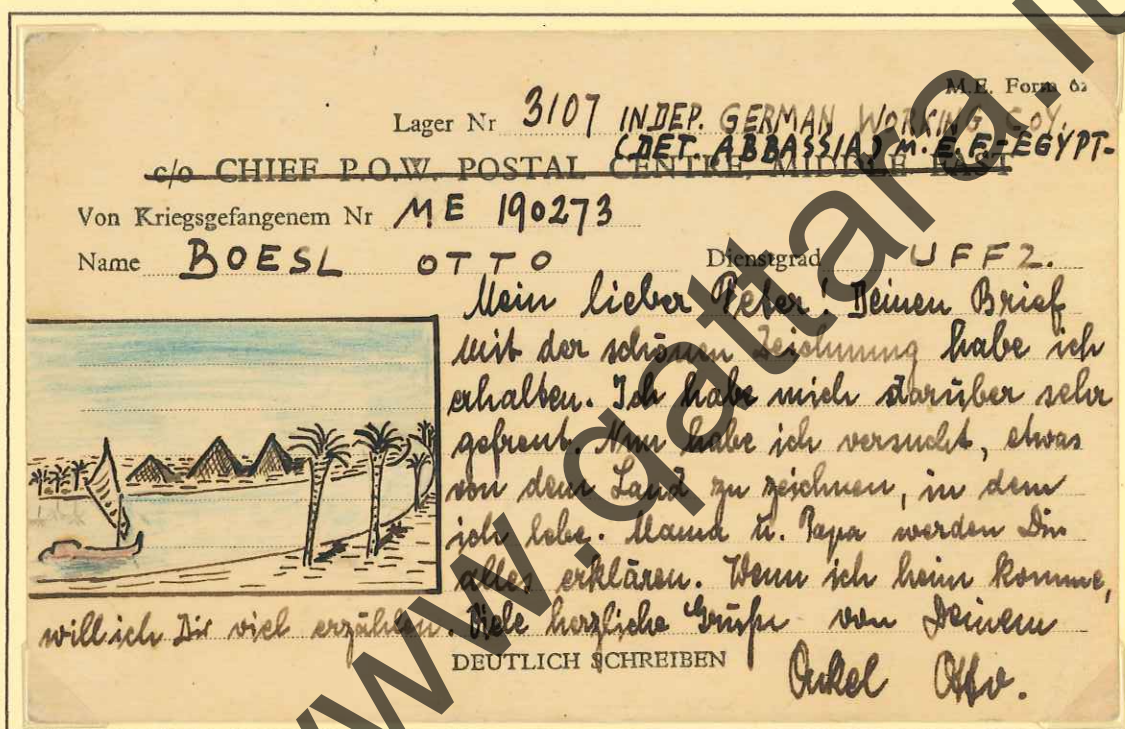 M.E. Form 62
Lager Nr 3107 INDEP. GERMAN WORKING COY.
(DET. ABBASSIA) M.E.F.-EGYPT-
c/o CHIEF P.O.W. POSTAL CENTRE, MIDDLE EAST
Von Kriegsgefangenem Nr ME 190273
Name BOESL OTTO Dienstgrad UFFZ.
Mein lieber Peter! Deinen Brief
mit der schönen Zeichnung habe ich
erhalten. Ich habe mich darüber sehr
gefreut. Nun habe ich versucht, etwas
von dem Land zu zeichnen, in dem
ich lebe. Mama u. Papa werden Dir
alles erklären. Wenn ich heim komme,
will ich Dir viel erzählen. Viele herzliche Grüße von Deinem
DEUTLICH SCHREIBEN
Onkel Otto.
www.qattara.